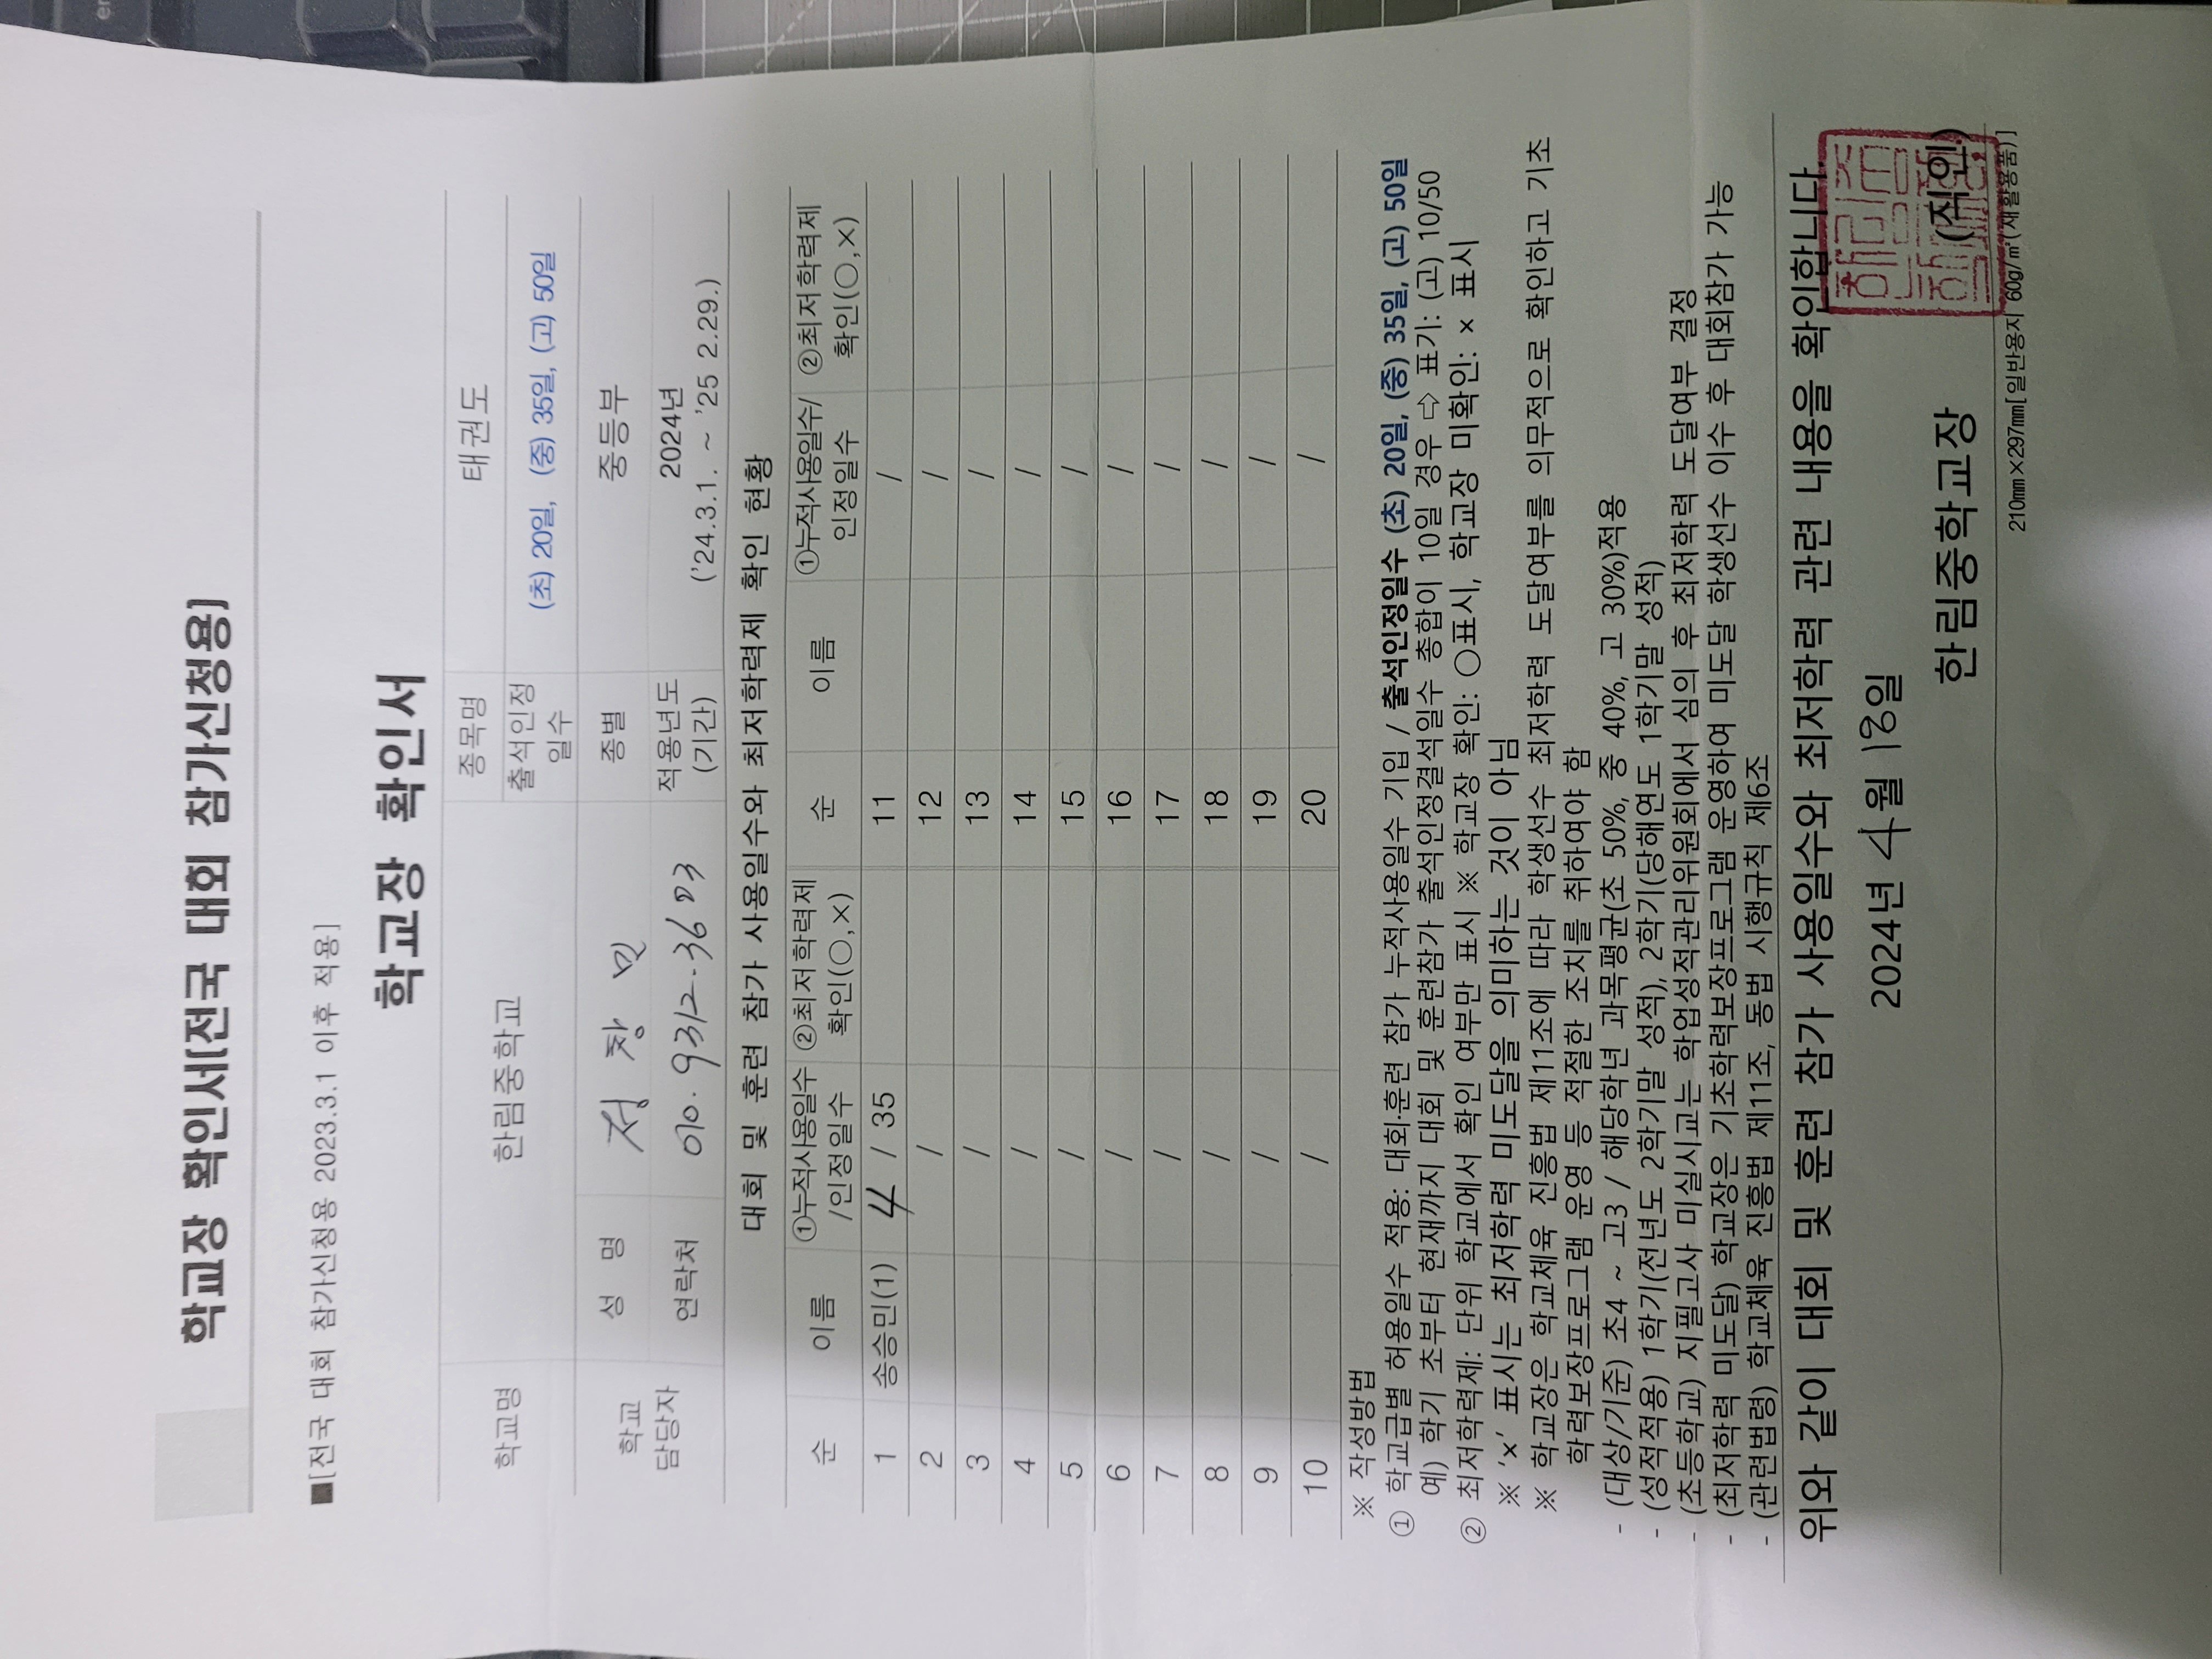 학교장 확인서[전국 대회 참가신청용]
■[전국 대회 참가신청용 2023.3.1 이후 적용]
학교장 확인서
학교명 한림중학교 종목명 태권도
출석인정일수 (초) 20일, (중) 35일, (고) 50일
학교 담당자 성 명 정창민 종별 중등부
연락처 010. 9312-3603 적용년도 (기간) 2024년 ('24.3.1. ~ '25 2.29.)
대회 및 훈련 참가 사용일수와 최저학력제 확인 현황
순 이름 ①누적사용일수/인정일수 ②최저학력제 확인(○,×) 순 이름 ①누적사용일수/인정일수 ②최저학력제 확인(○,×)
1 송승민(1) 4 / 35 11 /
2 / 12 /
3 / 13 /
4 / 14 /
5 / 15 /
6 / 16 /
7 / 17 /
8 / 18 /
9 / 19 /
10 / 20 /
※ 작성방법
① 학교급별 허용일수 적용: 대회·훈련 참가 누적사용일수 기입 / 출석인정일수 (초) 20일, (중) 35일, (고) 50일
예) 학기 초부터 현재까지 대회 및 훈련참가 출석인정결석일수 총합이 10일 경우 ⇨ 표기: (고) 10/50
② 최저학력제: 단위 학교에서 확인 여부만 표시 ※ 학교장 확인: ○표시, 학교장 미확인: × 표시
※ '×' 표시는 최저학력 미도달을 의미하는 것이 아님
※ 학교장은 학교체육 진흥법 제11조에 따라 학생선수 최저학력 도달여부를 의무적으로 확인하고 기초
학력보장프로그램 운영 등 적절한 조치를 취하여야 함
- (대상/기준) 초4 ~ 고3 / 해당학년 과목평균(초 50%, 중 40%, 고 30%)적용
- (성적적용) 1학기(전년도 2학기말 성적), 2학기(당해연도 1학기말 성적)
- (초등학교) 지필고사 미실시교는 학업성적관리위원회에서 심의 후 최저학력 도달여부 결정
- (최저학력 미도달) 학교장은 기초학력보장프로그램 운영하여 미도달 학생선수 이수 후 대회참가 가능
- (관련법령) 학교체육 진흥법 제11조, 동법 시행규칙 제6조
위와 같이 대회 및 훈련 참가 사용일수와 최저학력 관련 내용을 확인합니다.
2024년 4월 18일
한림중학교장 (직인)
210㎜×297㎜[일반용지 60g/㎡(재활용품)]